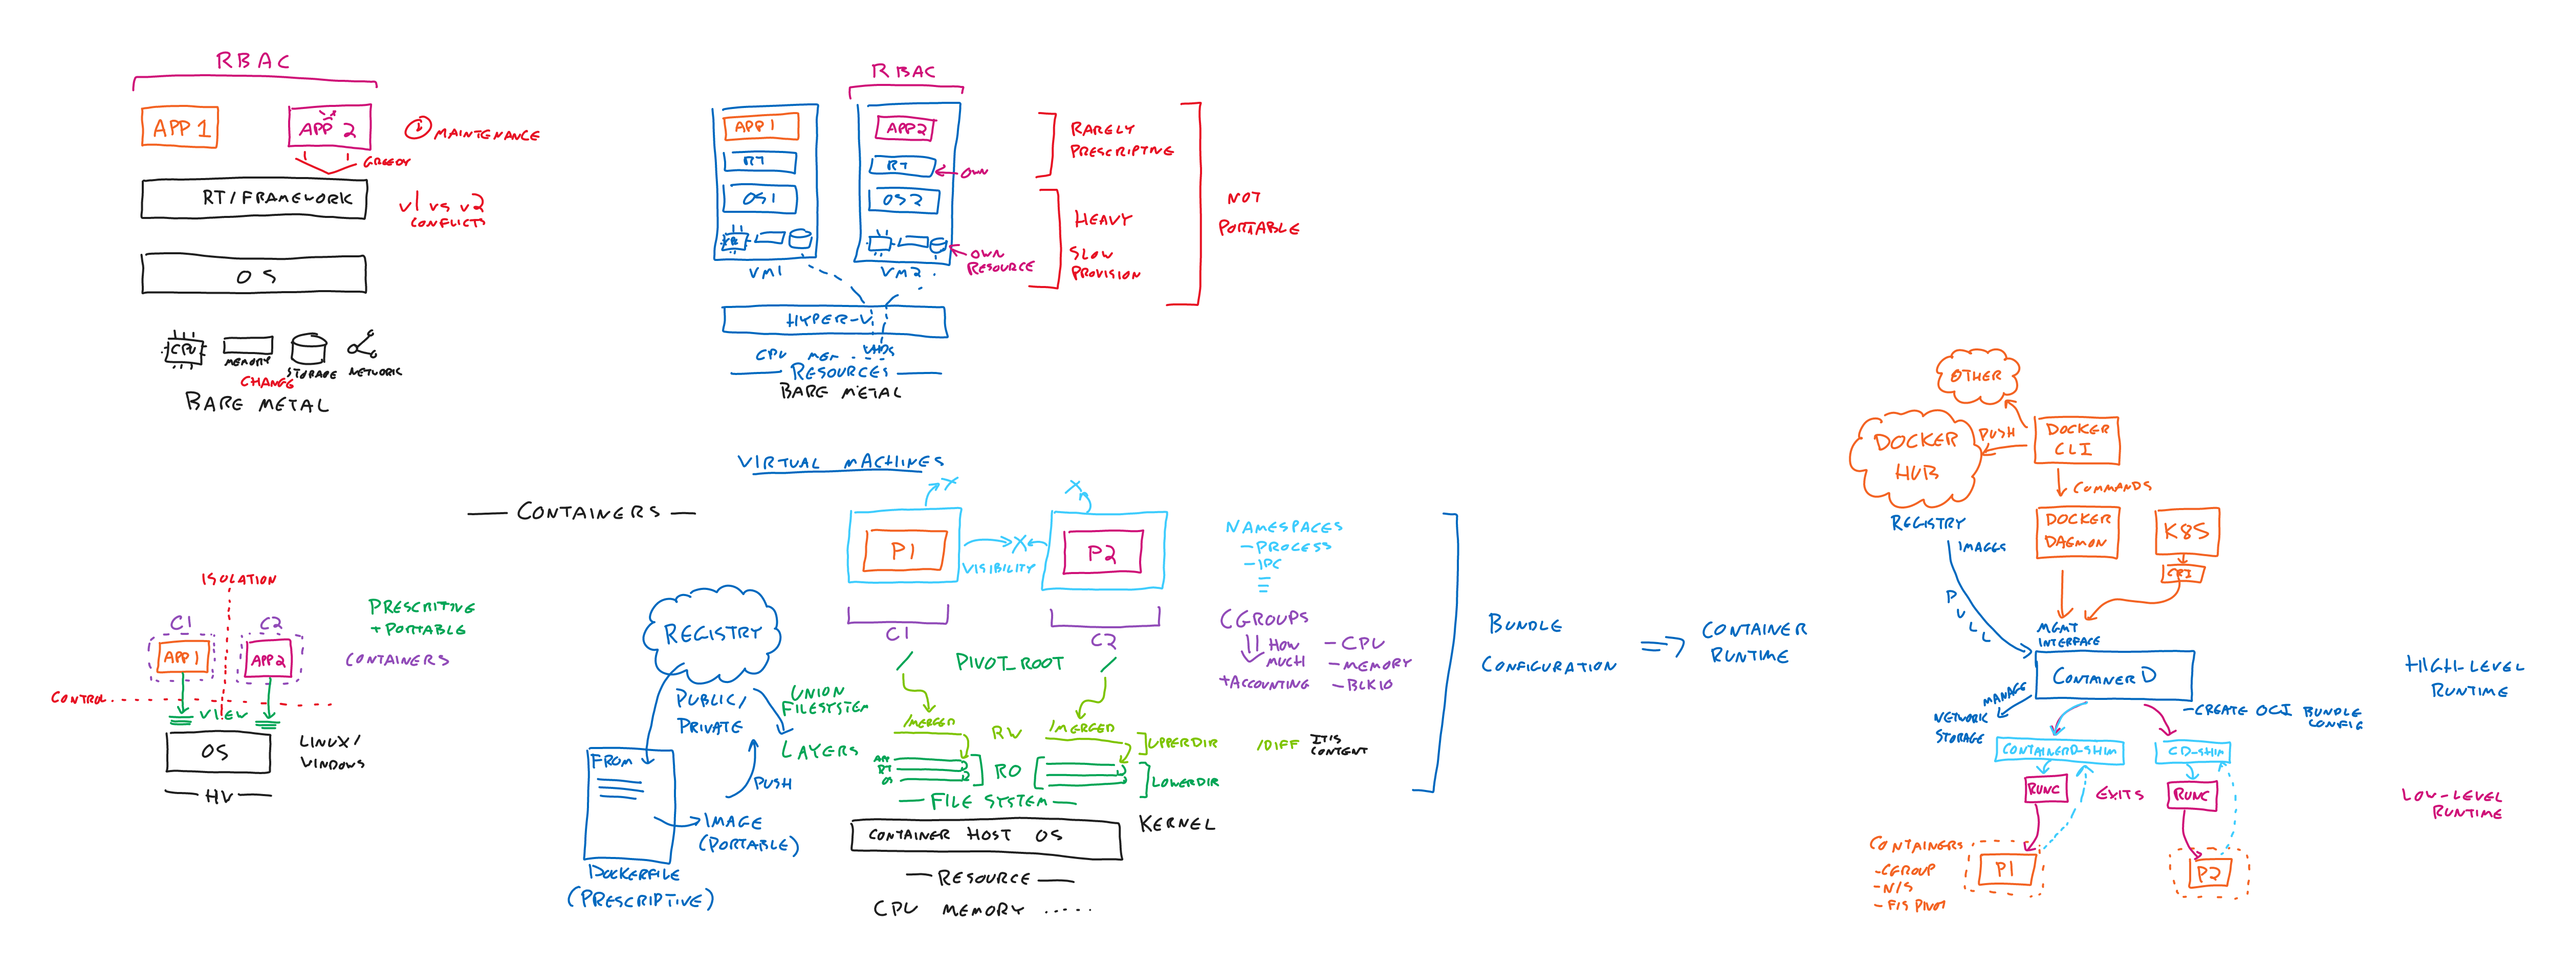 RBAC
APP 1
APP 2
① MAINTENANCE
GREEDY
RT/FRAMEWORK
V1 VS V2
CONFLICTS
OS
CPU
MEMORY
STORAGE
NETWORK
CHANGE
BARE METAL
RBAC
APP 1
APP2
RT
RT
OWN
OS1
OS2
OWN
RESOURCE
VM1
VM2
RARELY
PRESCRIPTIVE
HEAVY
SLOW
PROVISION
NOT
PORTABLE
HYPER-V
CPU MEM . . VHDS
RESOURCES
BARE METAL
VIRTUAL MACHINES
CONTAINERS
ISOLATION
C1
C2
APP 1
APP2
PRESCRITIVE
+ PORTABLE
CONTAINERS
CONTROL
VIEW
OS
LINUX/
WINDOWS
HV
REGISTRY
PUBLIC/
PRIVATE
UNION
FILESYSTEM
LAYERS
PUSH
FROM
IMAGE
(PORTABLE)
DOCKERFILE
(PRESCRIPTIVE)
X
X
P1
P2
X
VISIBILITY
C1
C2
/
PIVOT_ROOT
/
/MERGED
RW
/MERGED
UPPERDIR
/DIFF
IT'S
CONTENT
APP
RT
OS
RO
LOWERDIR
FILE SYSTEM
CONTAINER HOST OS
KERNEL
RESOURCE
CPU MEMORY .....
NAMESPACES
- PROCESS
- IPC
CGROUPS
HOW
MUCH
+ACCOUNTING
- CPU
- MEMORY
- BLKIO
BUNDLE
CONFIGURATION
=>
CONTAINER
RUNTIME
OTHER
DOCKER
HUB
PUSH
DOCKER
CLI
COMMANDS
REGISTRY
IMAGES
DOCKER
DAEMON
K8S
CRI
PULL
MGMT
INTERFACE
CONTAINER D
MANAGE
NETWORK
STORAGE
- CREATE OCI BUNDLE
CONFIG
CONTAINERD-SHIM
CD-SHIM
RUNC
EXITS
RUNC
CONTAINERS
- CGROUP
- N/S
- F/S PIVOT
P1
P2
HIGH-LEVEL
RUNTIME
LOW-LEVEL
RUNTIME